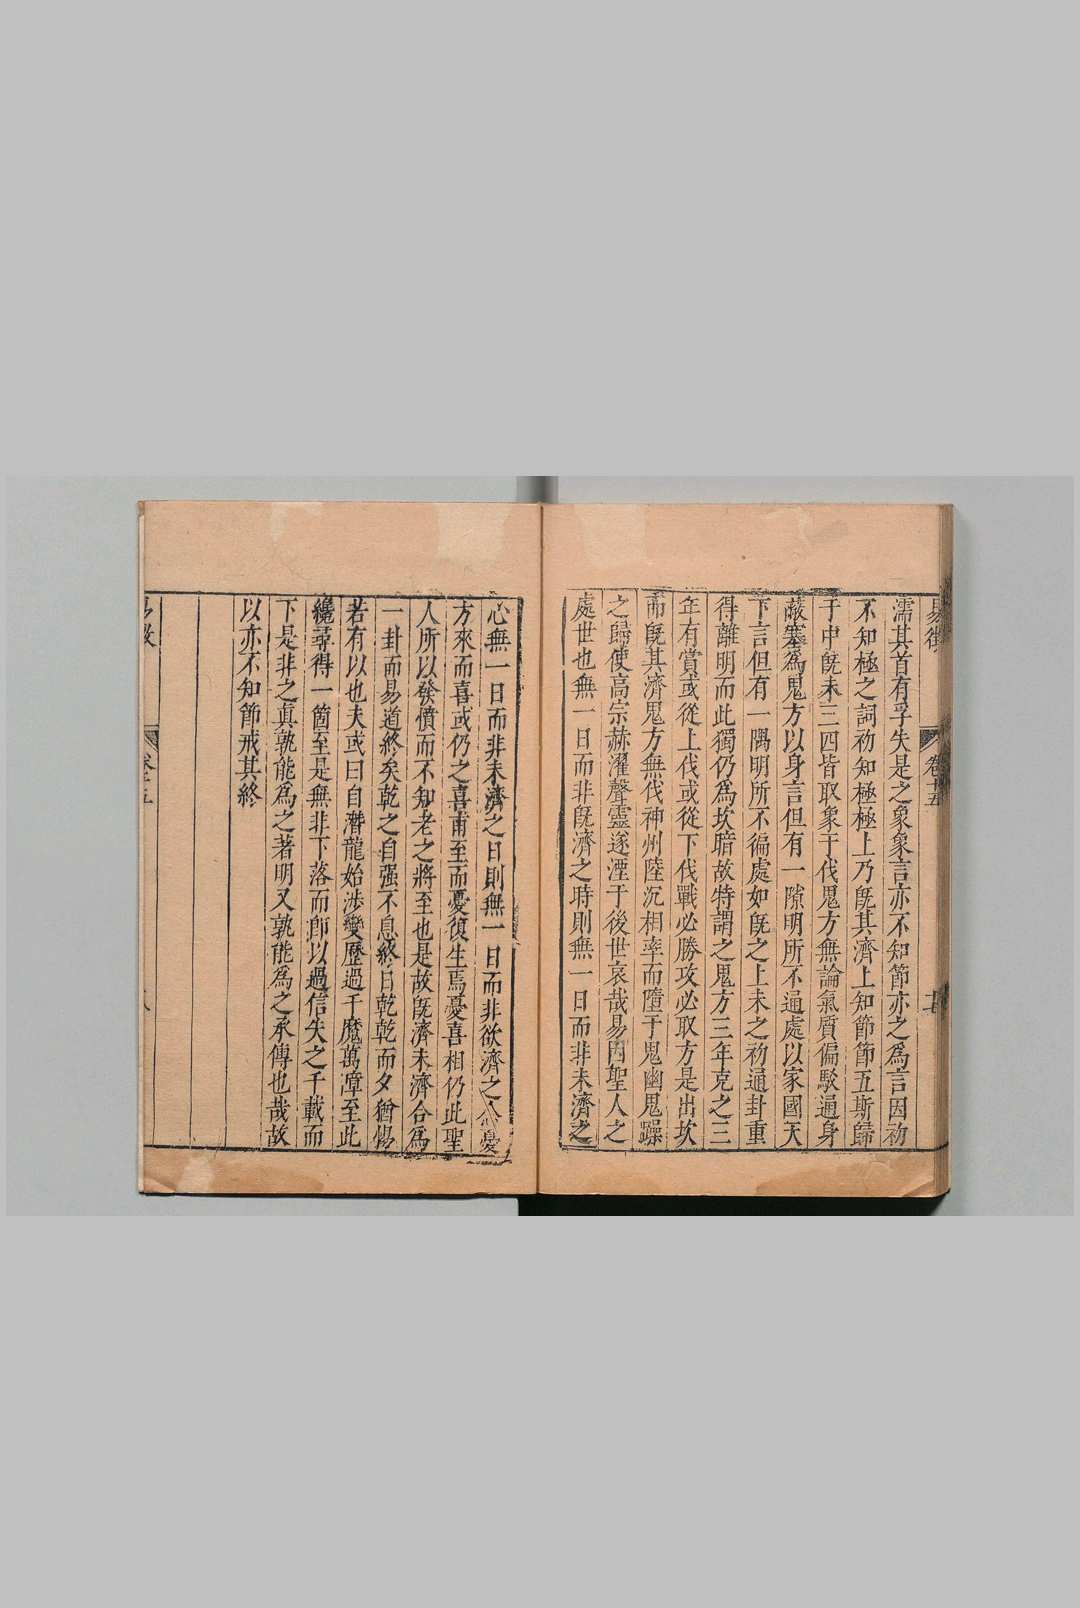 易
卷十五
濡其首有孚失是之象象言亦不知節亦之為言因初
不知極之詞初知極極上乃旣其濟上知節節五斯歸
于中旣未三四皆取象于伐鬼方無論氣質偏駁通身
蔽塞為鬼方以身言但有一隙明所不通處以家國天
下言但有一隅明所不徧處如旣之上未之初通卦重
得離明而此獨仍為坎暗故特謂之鬼方三年克之三
年有賞或從上伐或從下伐戰必勝攻必取方是出坎
而旣其濟鬼方無伐神州陸沉相率而墮于鬼幽鬼躁
之歸使高宗赫濯聲靈遂湮于後世哀哉易因聖人之
處世也無一日而非旣濟之時則無一日而非未濟之
心無一日而非未濟之日則無一日而非欲濟之念憂
方來而喜或仍之喜甫至而憂復生焉憂喜相仍此聖
人所以發憤而不知老之將至也是故旣濟未濟合為
一卦而易道終矣乾之自强不息終日乾乾而夕猶惕
若有以也夫或曰自潛龍始渉變歷過千魔萬障至此
纔尋得一箇至是無非下落而卽以過信失之千載而
下是非之眞孰能為之著明又孰能為之承傳也哉故
以亦不知節戒其終